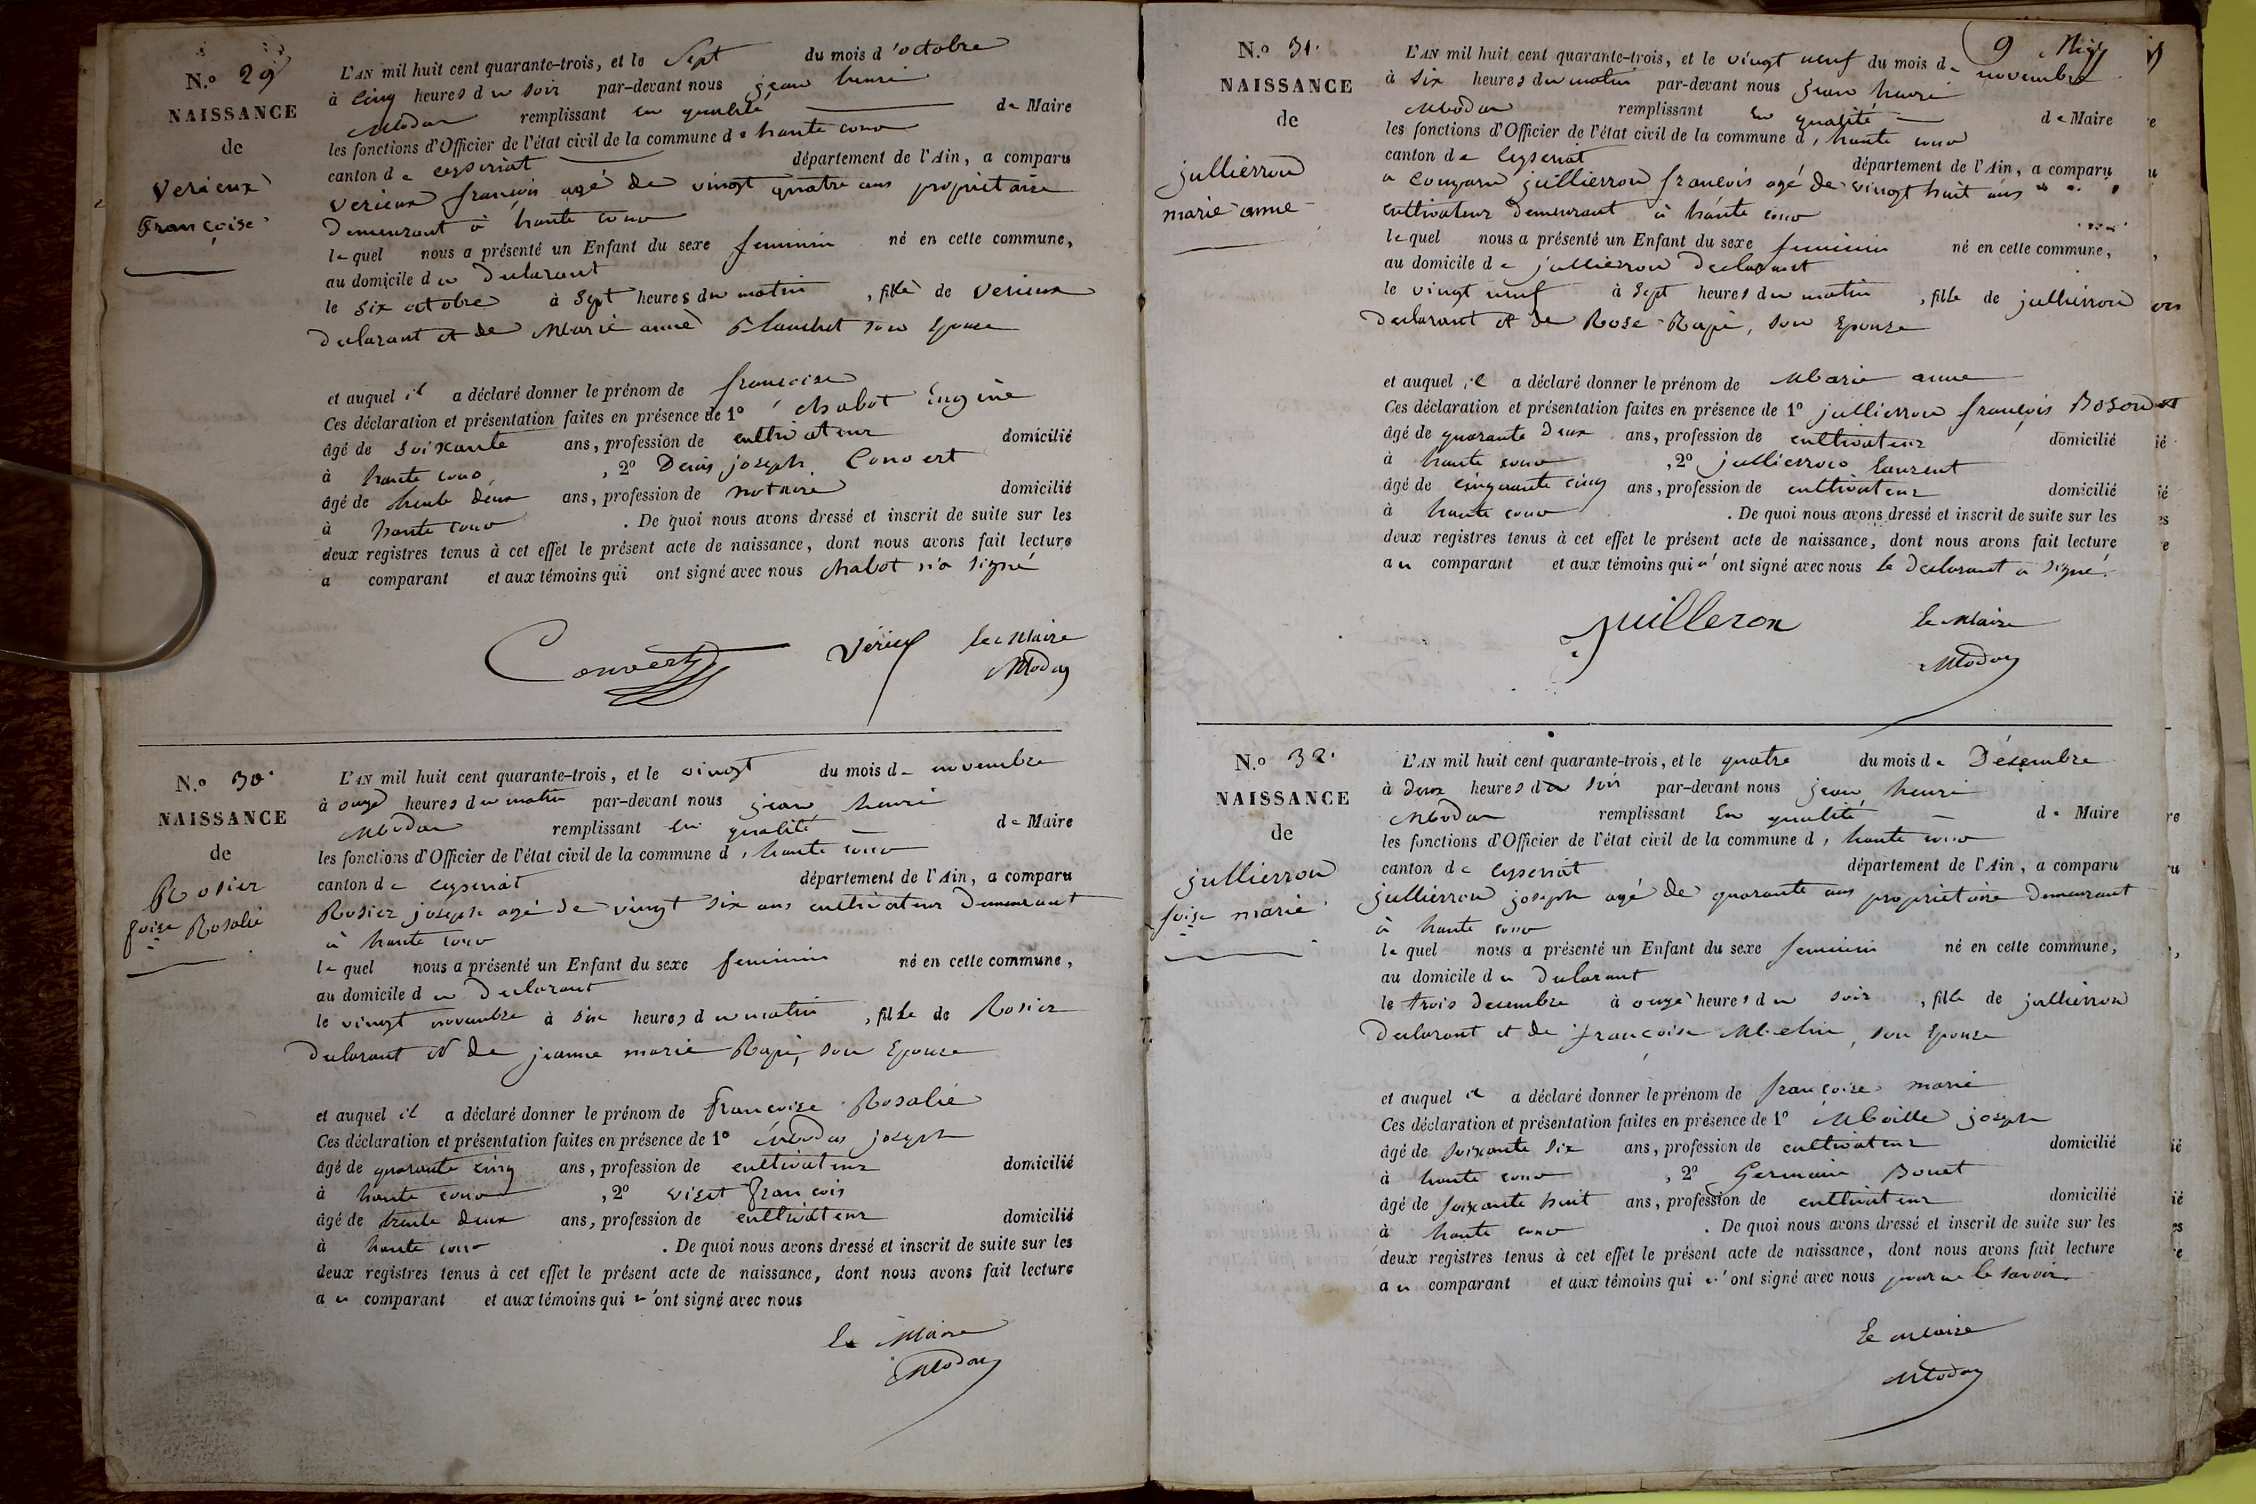 N.o 29
NAISSANCE
de
Verieux
Françoise
L'AN mil huit cent quarante-trois, et le Sept du mois d'octobre
à Cinq heures du soir par-devant nous jean henri
Modas remplissant en qualité de Maire
les fonctions d'Officier de l'état civil de la commune de haute cour
canton de ceyseriat département de l'Ain, a comparu
Verieux françois agé de vingt quatre ans propriétaire
Demeurant à haute cour
lequel nous a présenté un Enfant du sexe feminin né en cette commune,
au domicile du Declarant
le six octobre à Sept heures du matin, fille de Verieux
Declarant et de Marie anne Blanchet son Epouse
et auquel il a déclaré donner le prénom de françoise
Ces déclaration et présentation faites en présence de 1o Chabot Eugène
âgé de soixante ans, profession de cultivateur domicilié
à haute cour, 2o Denis joseph Convert
âgé de trente deux ans, profession de notaire domicilié
à haute cour. De quoi nous avons dressé et inscrit de suite sur les
deux registres tenus à cet effet le présent acte de naissance, dont nous avons fait lecture
a comparant et aux témoins qui ont signé avec nous chabot n'a signé
Convert Vérieux le Maire
Modas
N.o 30
NAISSANCE
de
Rosier
foise Rosalie
L'AN mil huit cent quarante-trois, et le vingt du mois de novembre
à onze heures du matin par-devant nous jean henri
Modas remplissant en qualité de Maire
les fonctions d'Officier de l'état civil de la commune d, haute cour
canton de ceyseriat département de l'Ain, a comparu
Rosier joseph agé de vingt six ans cultivateur Demeurant
à haute cour
lequel nous a présenté un Enfant du sexe feminin né en cette commune,
au domicile du Declarant
le vingt novembre à six heures du matin, fille de Rosier
Declarant et de jeanne marie Rapi, son Epouse
et auquel il a déclaré donner le prénom de françoise Rosalie
Ces déclaration et présentation faites en présence de 1o Modas joseph
âgé de quarante cinq ans, profession de cultivateur domicilié
à haute cour, 2o viset François
âgé de trente deux ans, profession de cultivateur domicilié
à haute cour. De quoi nous avons dressé et inscrit de suite sur les
deux registres tenus à cet effet le présent acte de naissance, dont nous avons fait lecture
au comparant et aux témoins qui n'ont signé avec nous
le Maire
Modas
9
N.o 31
NAISSANCE
de
jullierron
marie anne
L'AN mil huit cent quarante-trois, et le vingt neuf du mois de novembre
à six heures du matin par-devant nous jean henri
Modas remplissant en qualité de Maire
les fonctions d'Officier de l'état civil de la commune d, haute cour
canton de Ceyseriat département de l'Ain, a comparu
a comparu jullierron françois agé de vingt huit ans
cultivateur Demeurant à haute cour
lequel nous a présenté un Enfant du sexe feminin né en cette commune,
au domicile de jullierron Declarant
le vingt neuf à sept heures du matin, fille de jullierron
Declarant et de Rose Rapi, son Epouse
et auquel il a déclaré donner le prénom de Marie anne
Ces déclaration et présentation faites en présence de 1o jullierron françois
âgé de quarante deux ans, profession de cultivateur domicilié
à haute cour, 2o jullierron laurent
âgé de cinquante cinq ans, profession de cultivateur domicilié
à haute cour. De quoi nous avons dressé et inscrit de suite sur les
deux registres tenus à cet effet le présent acte de naissance, dont nous avons fait lecture
au comparant et aux témoins qui n'ont signé avec nous le Declarant a signé.
Juilleron le Maire
Modas
N.o 32
NAISSANCE
de
jullierron
foise marie
L'AN mil huit cent quarante-trois, et le quatre du mois de Désembre
à deux heures du soir par-devant nous jean henri
Modas remplissant En qualité de Maire
les fonctions d'Officier de l'état civil de la commune d, haute cour
canton de ceyseriat département de l'Ain, a comparu
jullierron joseph agé de quarante ans propriétaire Demeurant
à haute cour
lequel nous a présenté un Enfant du sexe feminin né en cette commune,
au domicile du Declarant
le trois decembre à onze heures du soir, fille de jullierron
Declarant et de françoise Melin, son Epouse
et auquel il a déclaré donner le prénom de françoise marie
Ces déclaration et présentation faites en présence de 1o joseph
âgé de soixante six ans, profession de cultivateur domicilié
à haute cour, 2o Germain Bouet
âgé de soixante huit ans, profession de cultivateur domicilié
à haute cour. De quoi nous avons dressé et inscrit de suite sur les
deux registres tenus à cet effet le présent acte de naissance, dont nous avons fait lecture
au comparant et aux témoins qui n'ont signé avec nous pour ne le savoir
Le Maire
Modas